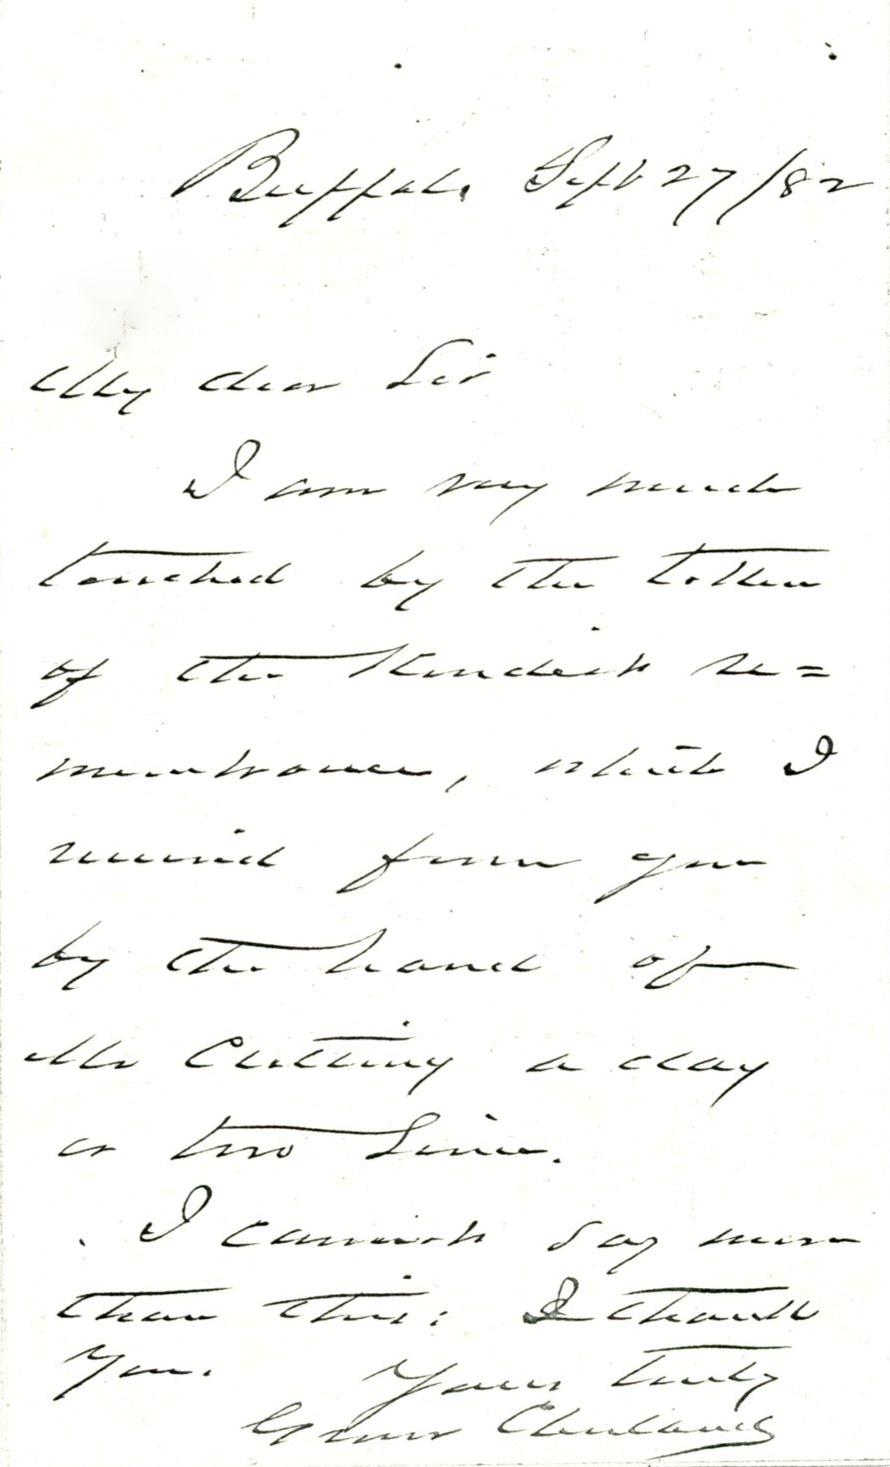 Buffalo, Sept 27/82
My dear Sir
I am very much
touched by the token
of the kindest re=
membrance, which I
received from you
by the hand of
Mr Cutting a day
or two since.
I cannot say more
than this: I thank
you. Yours truly
Grover Cleveland